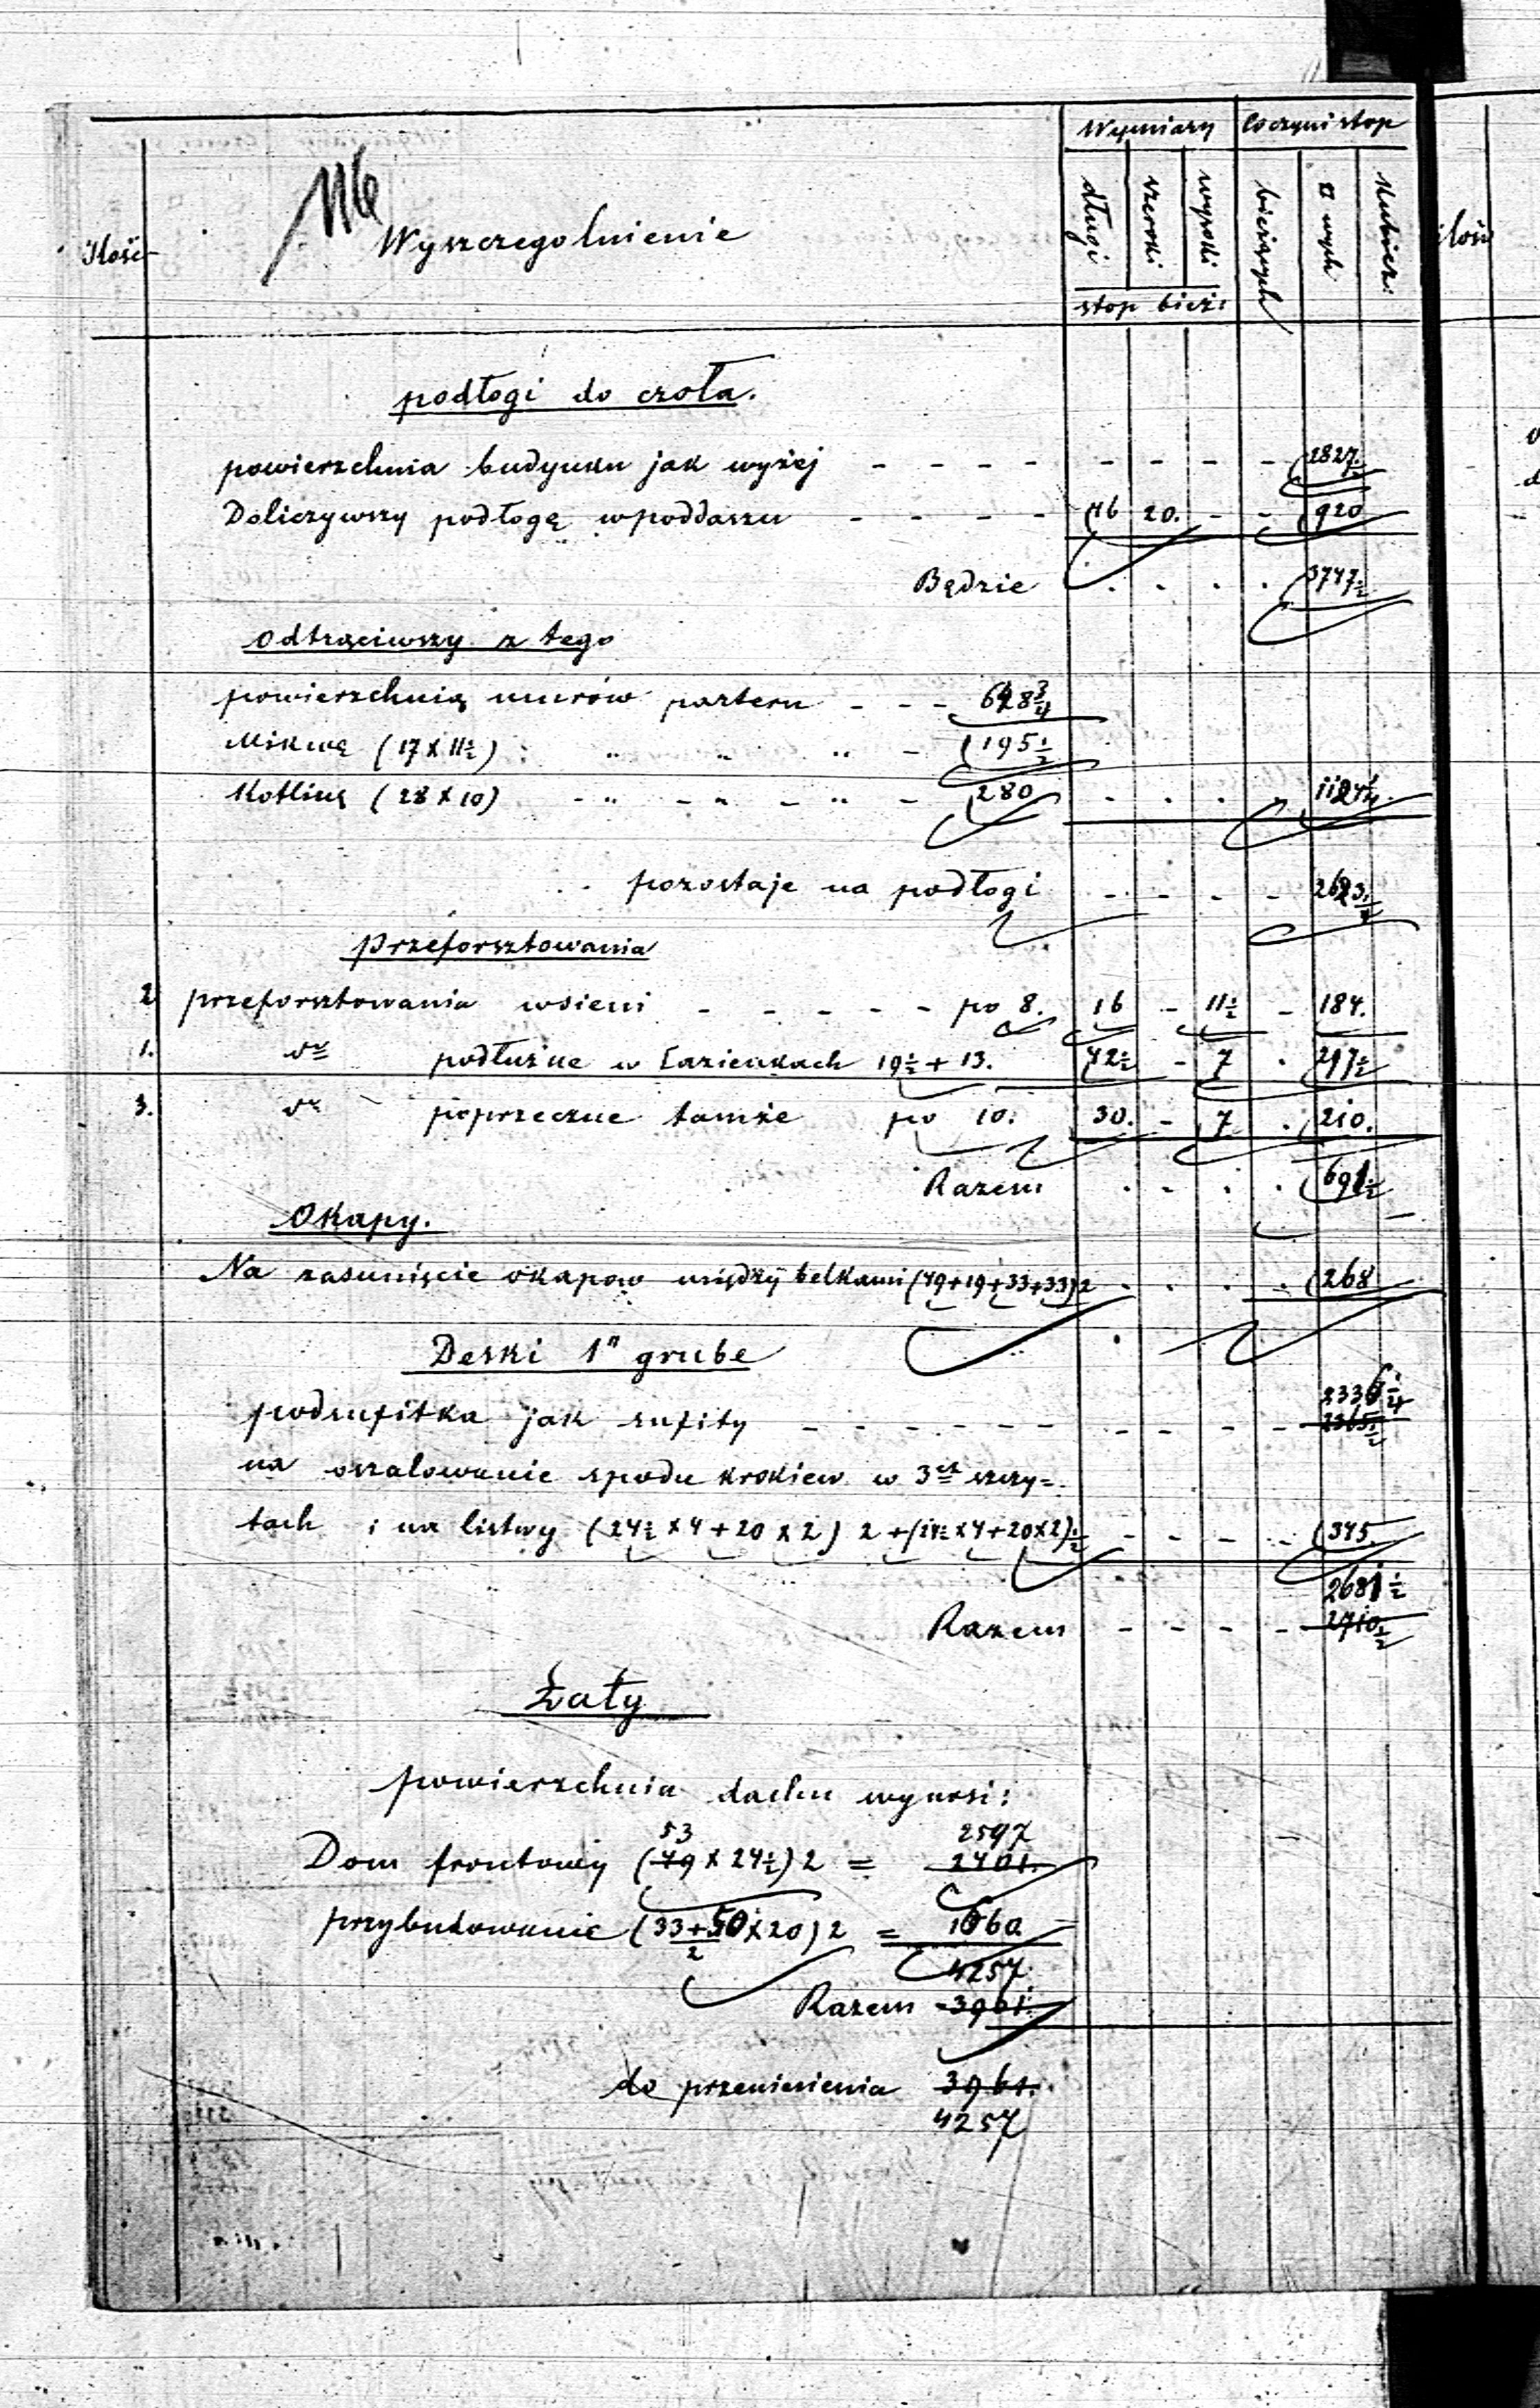 Wymiary Czyni stop
116
Ilość Wyszczegolnienie długi szeroki wysoki bieżących □ wych Kubicz:
stop bież:
podłogi do czoła.
powierzchnia budynku jak wyżej - - - - - - - - 2827½
Doliczywszy podłogę wpoddaszu - - - - 46 20. - - 920
Będzie . . . . 3747½
Odtrąciwszy z tego
powierzchnią murów parteru - - - 648¾
Mikwę (17 X 11½) : „ „ „ - 195½
Kotlinę (28 X 10) - „ - „ - „ - 280 . . . . 1124¼
pozostaje na podłogi - - - - 2623¼
Przeforsztowania
2 przeforsztowania wsieni - - - - - po 8. 16 - 11½ - 184.
1. dto podłużne w Łazienkach 19½ + 13. 42½ - 7 . 297½
3. dto poprzeczne tamże po 10. 30. - 7 . 210.
Razem . . . . 691½
Okapy.
Na zasunięcie okapow między belkami (49+19+33+33)2 . . . . 268
Deski 1" grube
2336¼
podsufitka jak sufity - - - - - - - - - - 2365½
na oszalowanie spodu krokiew w 3ch szczy=
tach i na listwy (24½ x 4 + 20 x 2) 2 + (24½ x 4 + 20 x 2)½ - - - - 345
2681½
Razem - - - - 2710½
Łaty
powierzchnia dachu wynosi:
53 2597
Dom frontowy (49 x 24½) 2 = 2401.
przybudowanie (33+50/2 x 20) 2 = 1660
4257
Razem 3961.
do przeniesienia 3961.
4257